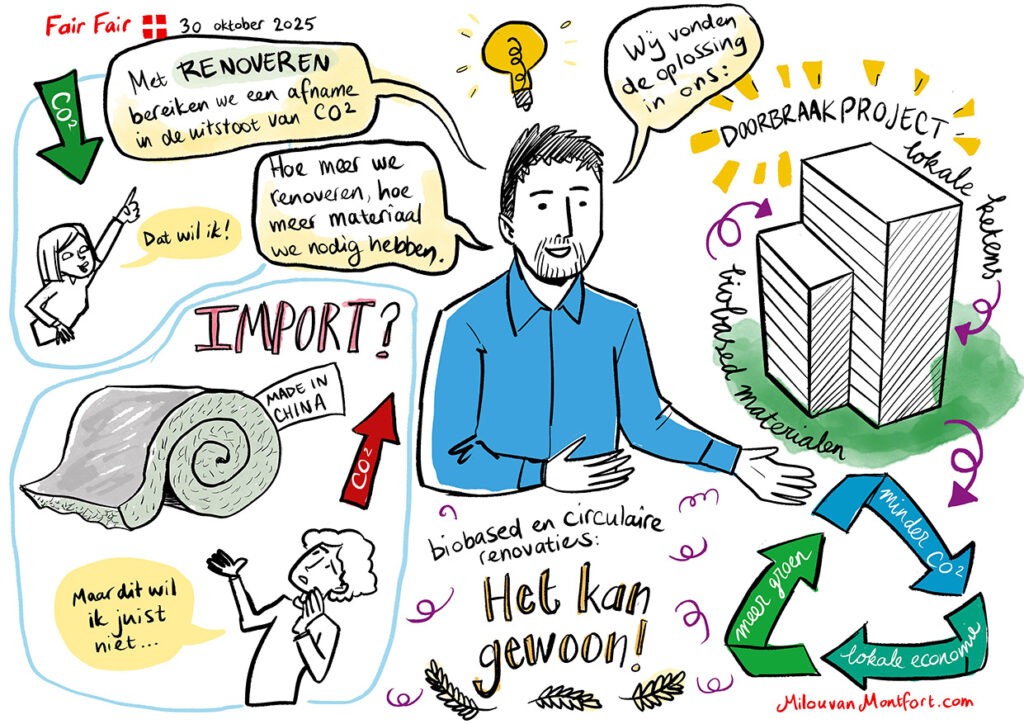 Fair Fair 30 oktober 2025
Met RENOVEREN
bereiken we een afname
in de uitstoot van CO²
CO²
Dat wil ik!
Hoe meer we
renoveren, hoe
meer materiaal
we nodig hebben.
Wij vonden
de oplossing
in ons:
DOORBRAAKPROJECT
lokale ketens
biobased materialen
IMPORT?
MADE IN
CHINA
CO²
Maar dit wil
ik juist
niet...
biobased en circulaire
renovatiers:
Het kan
gewoon!
minder CO²
lokale economie
meer groen
MilouvanMontfort.com